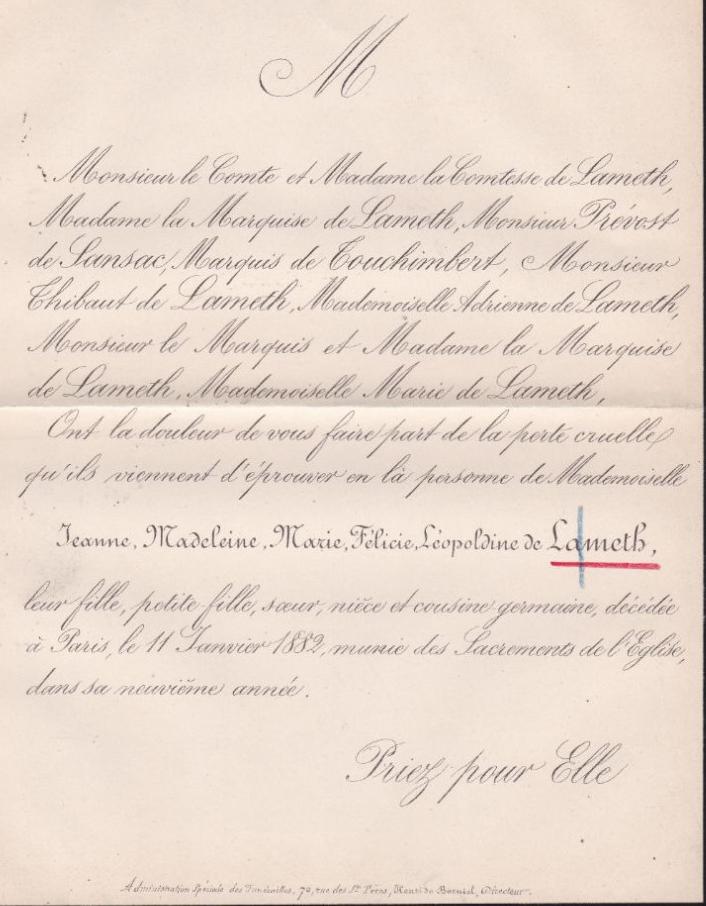 M
Monsieur le Comte et Madame la Comtesse de Lameth,
Madame la Marquise de Lameth, Monsieur Prévost
de Sansac, Marquis de Touchimbert, Monsieur
Thibaut de Lameth, Mademoiselle Adrienne de Lameth,
Monsieur le Marquis et Madame la Marquise
de Lameth, Mademoiselle Marie de Lameth,
Ont la douleur de vous faire part de la perte cruelle
qu'ils viennent d'éprouver en la personne de Mademoiselle
Jeanne, Madeleine, Marie, Félicie, Léopoldine de Lameth,
leur fille, petite fille, sœur, nièce et cousine germaine, décédée
à Paris, le 11 Janvier 1882, munie des Sacrements de l'Eglise,
dans sa neuvième année.
Priez pour Elle
Administration Spéciale des Funérailles, 70, rue des Sts Pères, Henri de Borniol, Directeur.